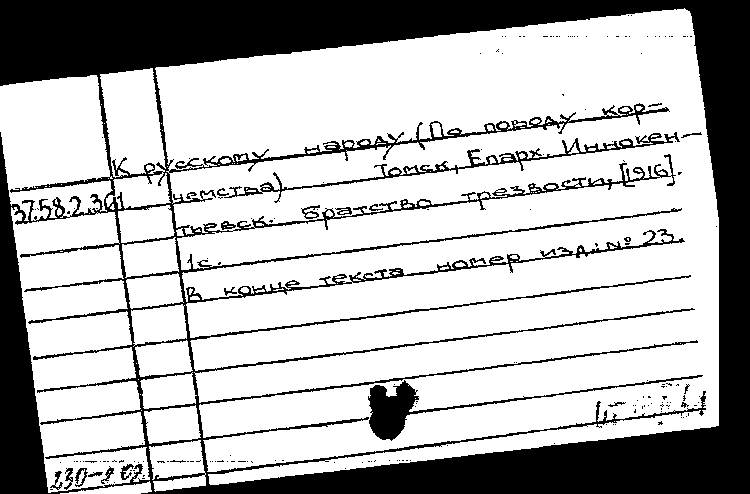 К русскому народу (По поводу кор-
37.58.2.361. чемства) Томск, Епарх. Иннокен-
тьевск. братство трезвости, [1916].
1с.
В конце текста номер изд.: № 23.